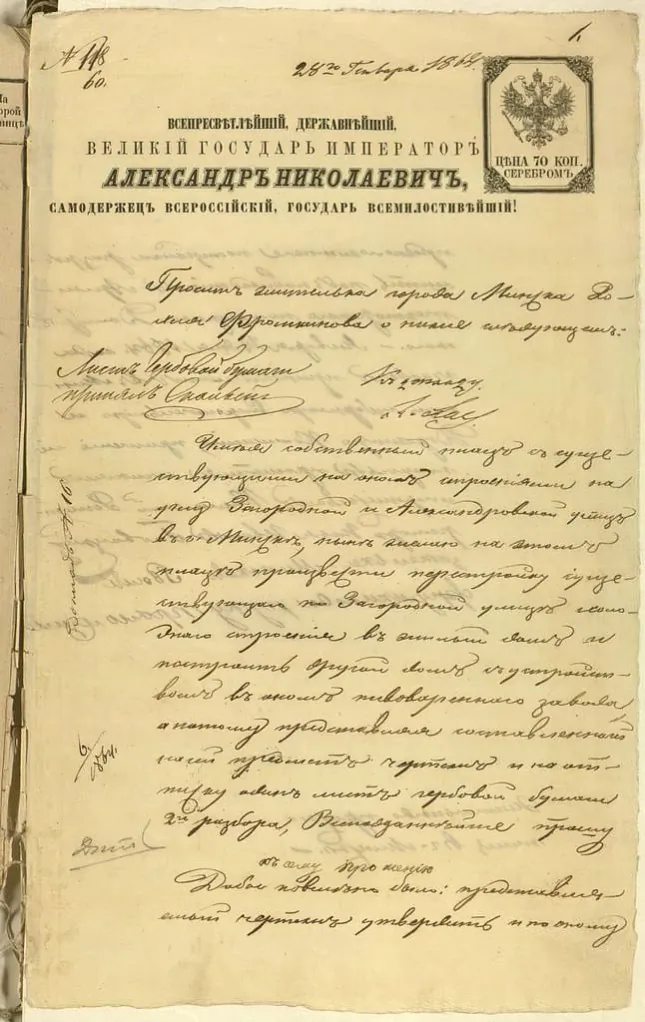 1.
№ 118
60.
28го Генваря 1864
ЦѢНА 70 КОП.
СЕРЕБРОМЪ
ВСЕПРЕСВѢТЛѢЙШІЙ, ДЕРЖАВНѢЙШІЙ,
ВЕЛИКІЙ ГОСУДАРЬ ИМПЕРАТОРЪ
АЛЕКСАНДРЪ НИКОЛАЕВИЧЪ,
САМОДЕРЖЕЦЪ ВСЕРОССІЙСКІЙ, ГОСУДАРЬ ВСЕМИЛОСТИВѢЙШІЙ!
Проситъ жителька города Минска
Фрумкинова о ниже слѣдующемъ:
Листъ Гербовой бумаги
принялъ
Къ докладу
Имѣя собственный плацъ съ суще-
ствующими на ономъ строеніями на
углу Загородной и Александровской улицъ
въ г. Минскѣ, нынѣ желаю на этомъ
плацѣ произвести перестройку суще-
ствующаго по Загородной улицѣ холо-
днаго строенія въ жилый домъ и
построить другой домъ съ устройст-
вомъ въ ономъ пивовареннаго завода,
а потому представляя составленный
на сей предметъ чертежъ и на от-
писку одинъ листъ гербовой бумаги
2го разбора, Всеподданнѣйше прошу
къ сему прошенію
Дабы повелѣно было: представля-
емый чертежъ утвердить и по оному
6/
864.